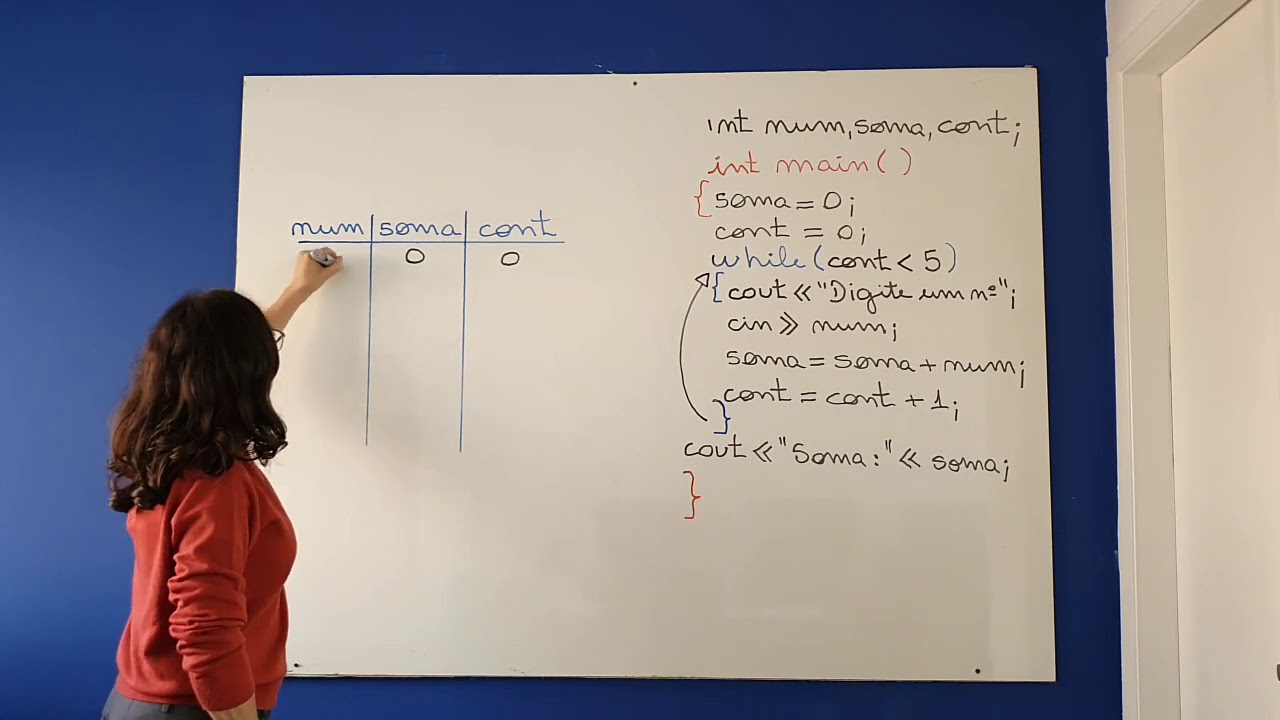 num soma cont
0 0
int num, soma, cont;
int main()
{ soma = 0;
cont = 0;
while (cont < 5)
{ cout << "Digite um nº";
cin >> num;
soma = soma + num;
cont = cont + 1;
}
cout << "Soma:" << soma;
}